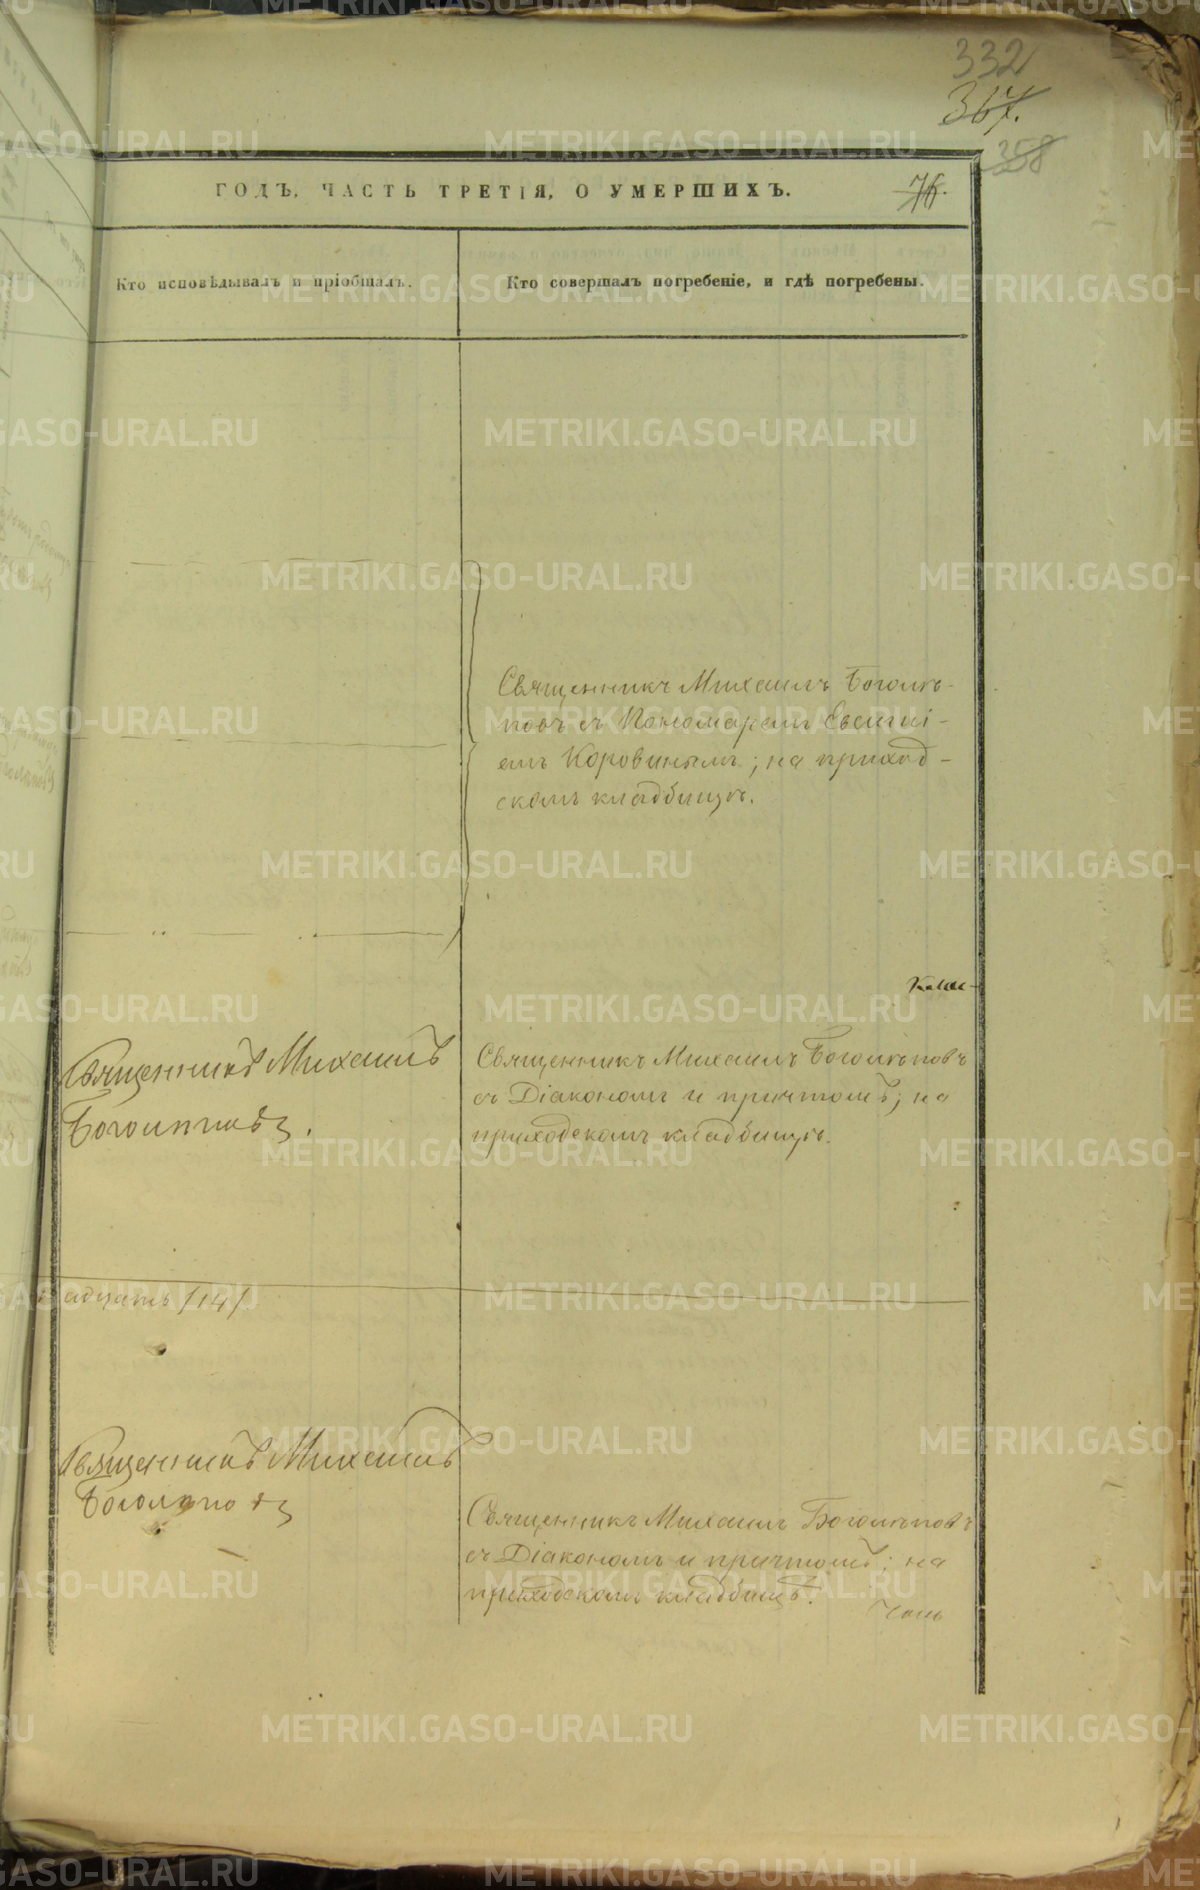 332
367.
358
ГОДЪ, ЧАСТЬ ТРЕТІЯ, О УМЕРШИХЪ.
76.
Кто исповѣдывалъ и пріобщалъ.
Кто совершалъ погребеніе, и гдѣ погребены.
Священникъ Михаилъ Боголѣ-
повъ съ Пономаремъ Евсигні-
емъ Коровинымъ; на приход-
скомъ кладбищѣ.
Священникъ Михаилъ
Боголѣповъ.
Священникъ Михаилъ Боголѣповъ
съ Діакономъ и причтомъ; на
приходскомъ кладбищѣ.
адцать /14/
Священникъ Михаилъ
Боголѣповъ
Священникъ Михаилъ Боголѣповъ
съ Діакономъ и причтомъ; на
приходскомъ кладбищѣ.
METRIKI.GASO-URAL.RU